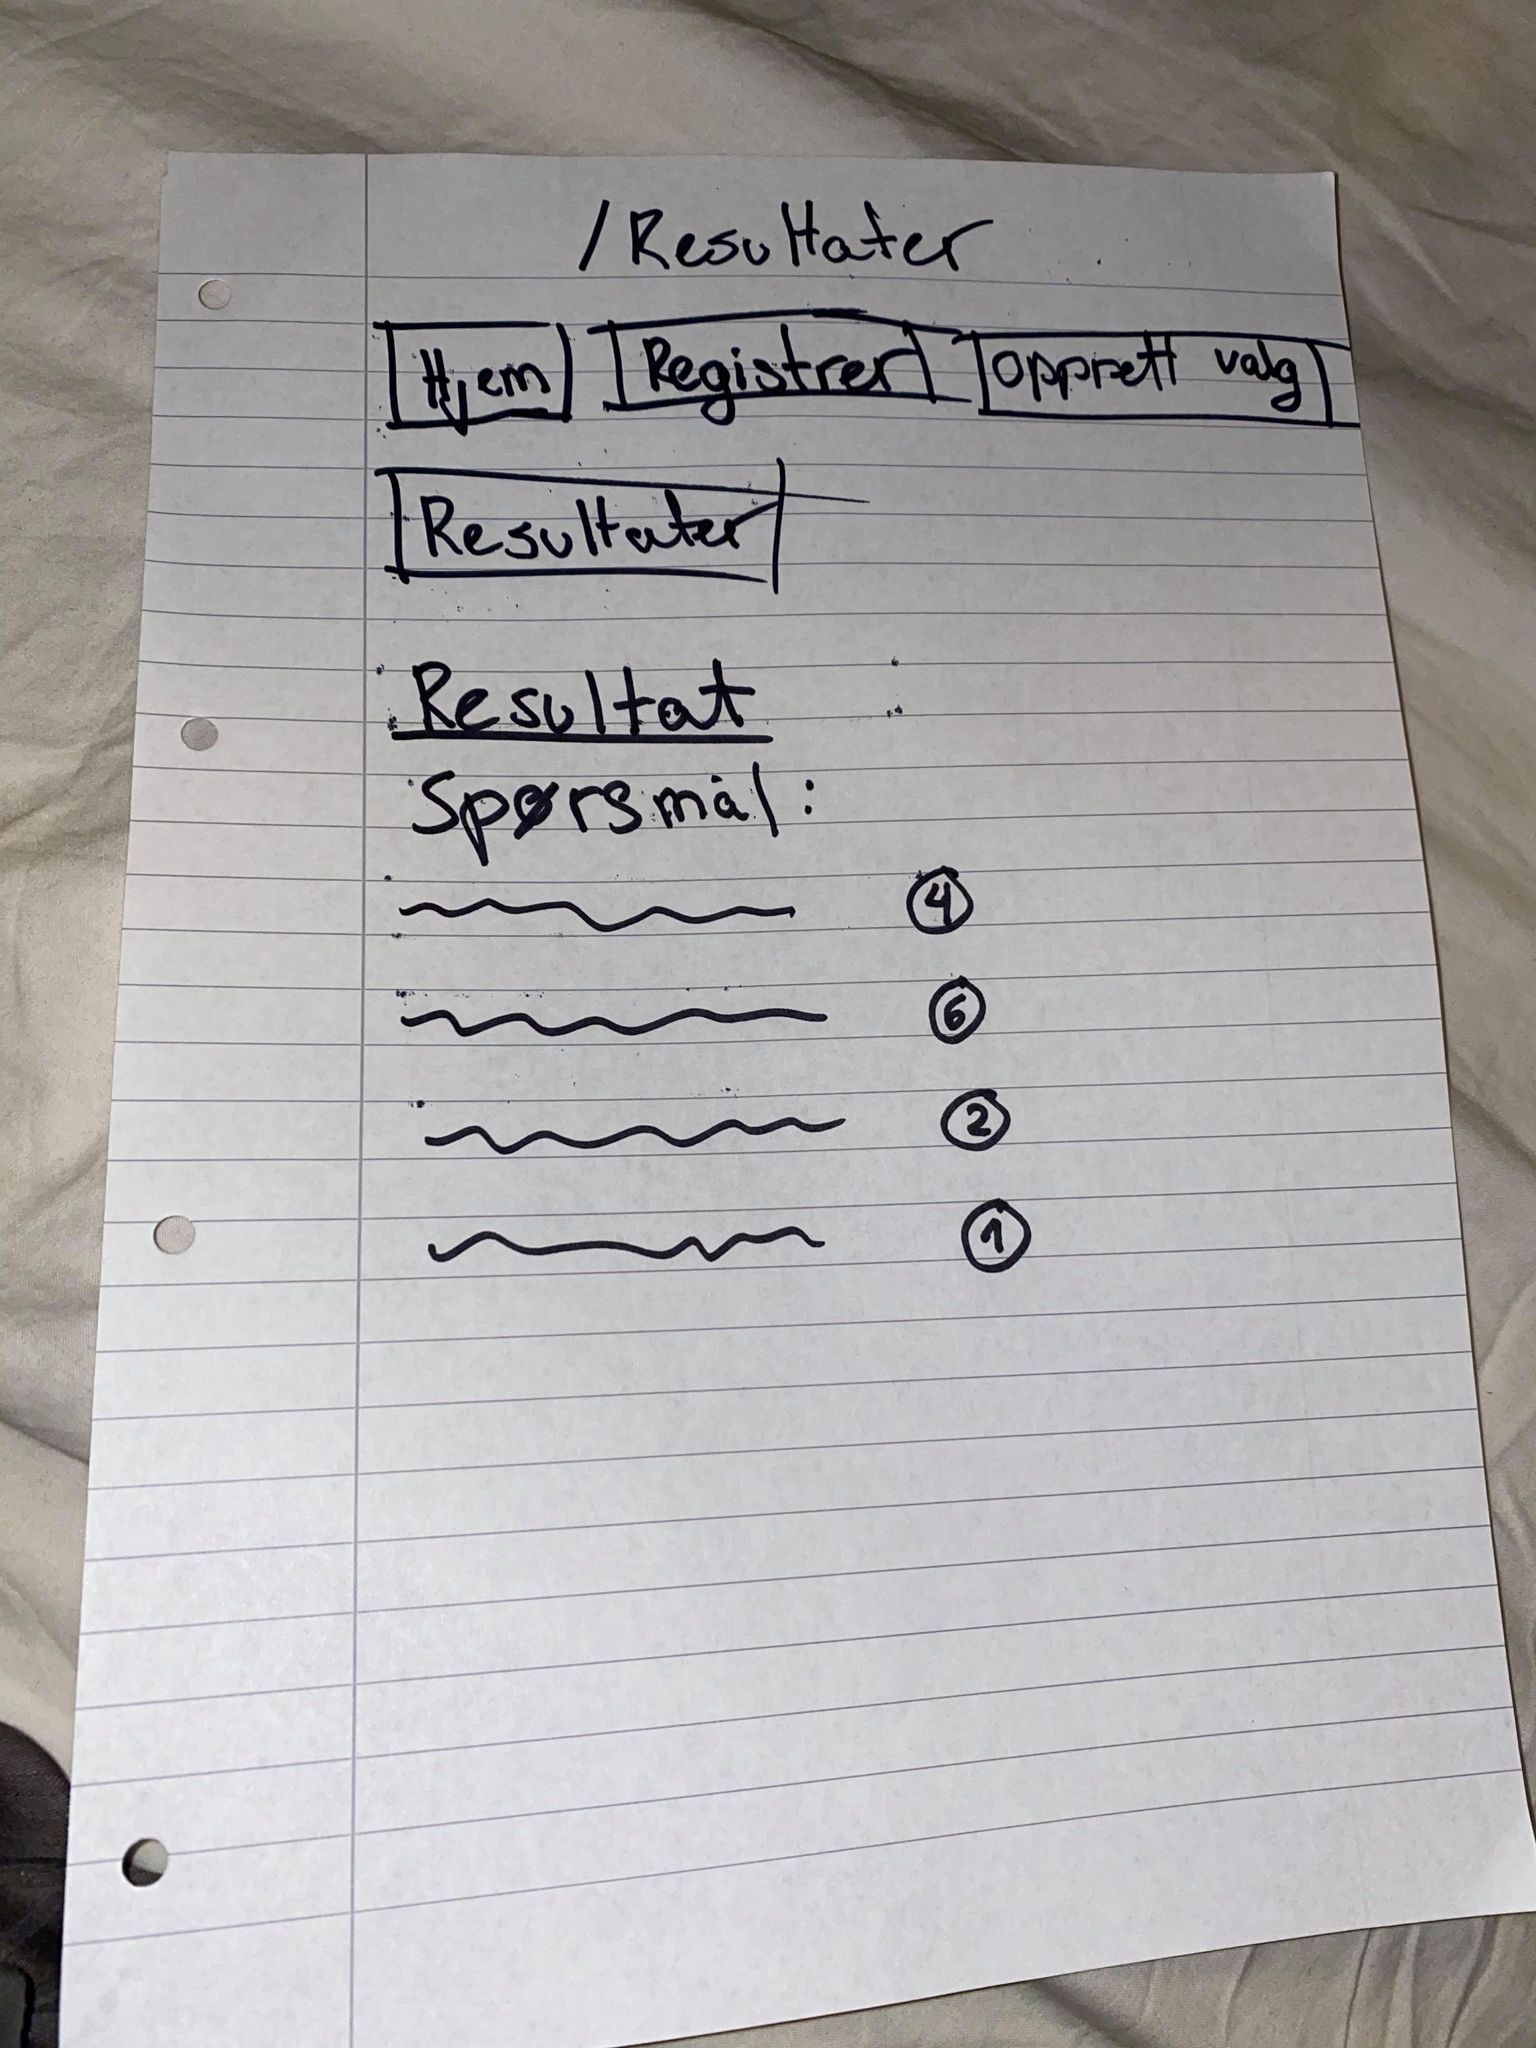 /Resultater
Hjem Registrer Opprett valg
Resultater
Resultat
Spørsmål:
4
6
2
1